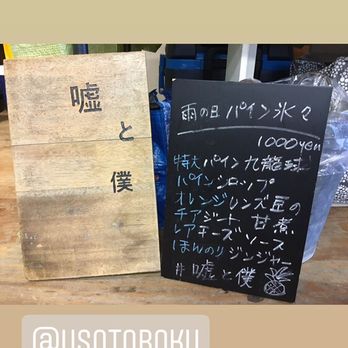 嘘
と
僕
雨の日パイン氷々
1000yen
特大パイン九龍球
パインシロップ
オレンジレンズ豆の
チアジート甘煮
レアチーズソース
ほんのりジンジャー
#嘘と僕
@USOTOBOKU